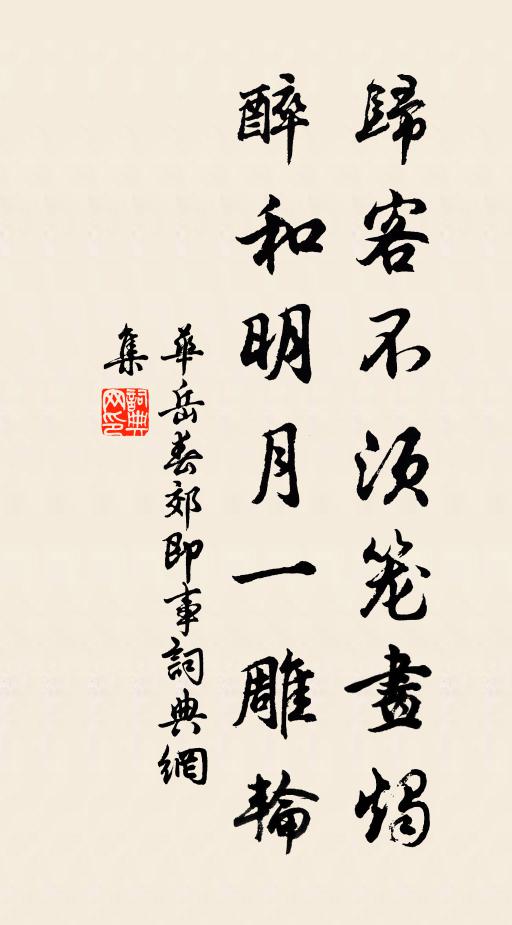 歸客不須笼畫燭
醉和明月一雕輪
華岳春郊即事詞典網
集
詞典
网印